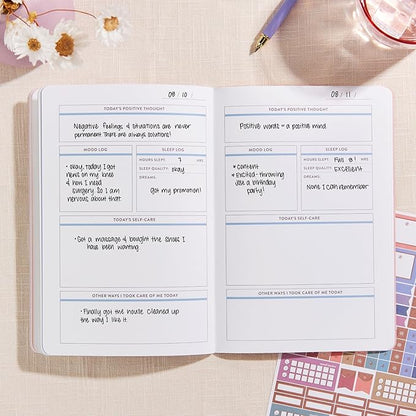 09 / 10 /
TODAY'S POSITIVE THOUGHT
Negative feelings & situations are never
permanent. There are always solutions!
MOOD LOG
SLEEP LOG
• Okay, today I got
news on my knee
& how I need
surgery. So I am
nervous about that.
HOURS SLEPT: 7 HRS
SLEEP QUALITY: okay
DREAMS:
Got my promotion!
TODAY'S SELF-CARE
• Got a massage & bought the shoes I
have been wanting.
OTHER WAYS I TOOK CARE OF ME TODAY
• Finally got the house cleaned up
the way I like it.
09 / 11 /
TODAY'S POSITIVE THOUGHT
Positive words = a positive mind.
MOOD LOG
SLEEP LOG
• Content
• Excited - throwing
Joe a birthday
party!
HOURS SLEPT: Full 8! HRS
SLEEP QUALITY: Excellent
DREAMS:
None I can remember
TODAY'S SELF-CARE
OTHER WAYS I TOOK CARE OF ME TODAY